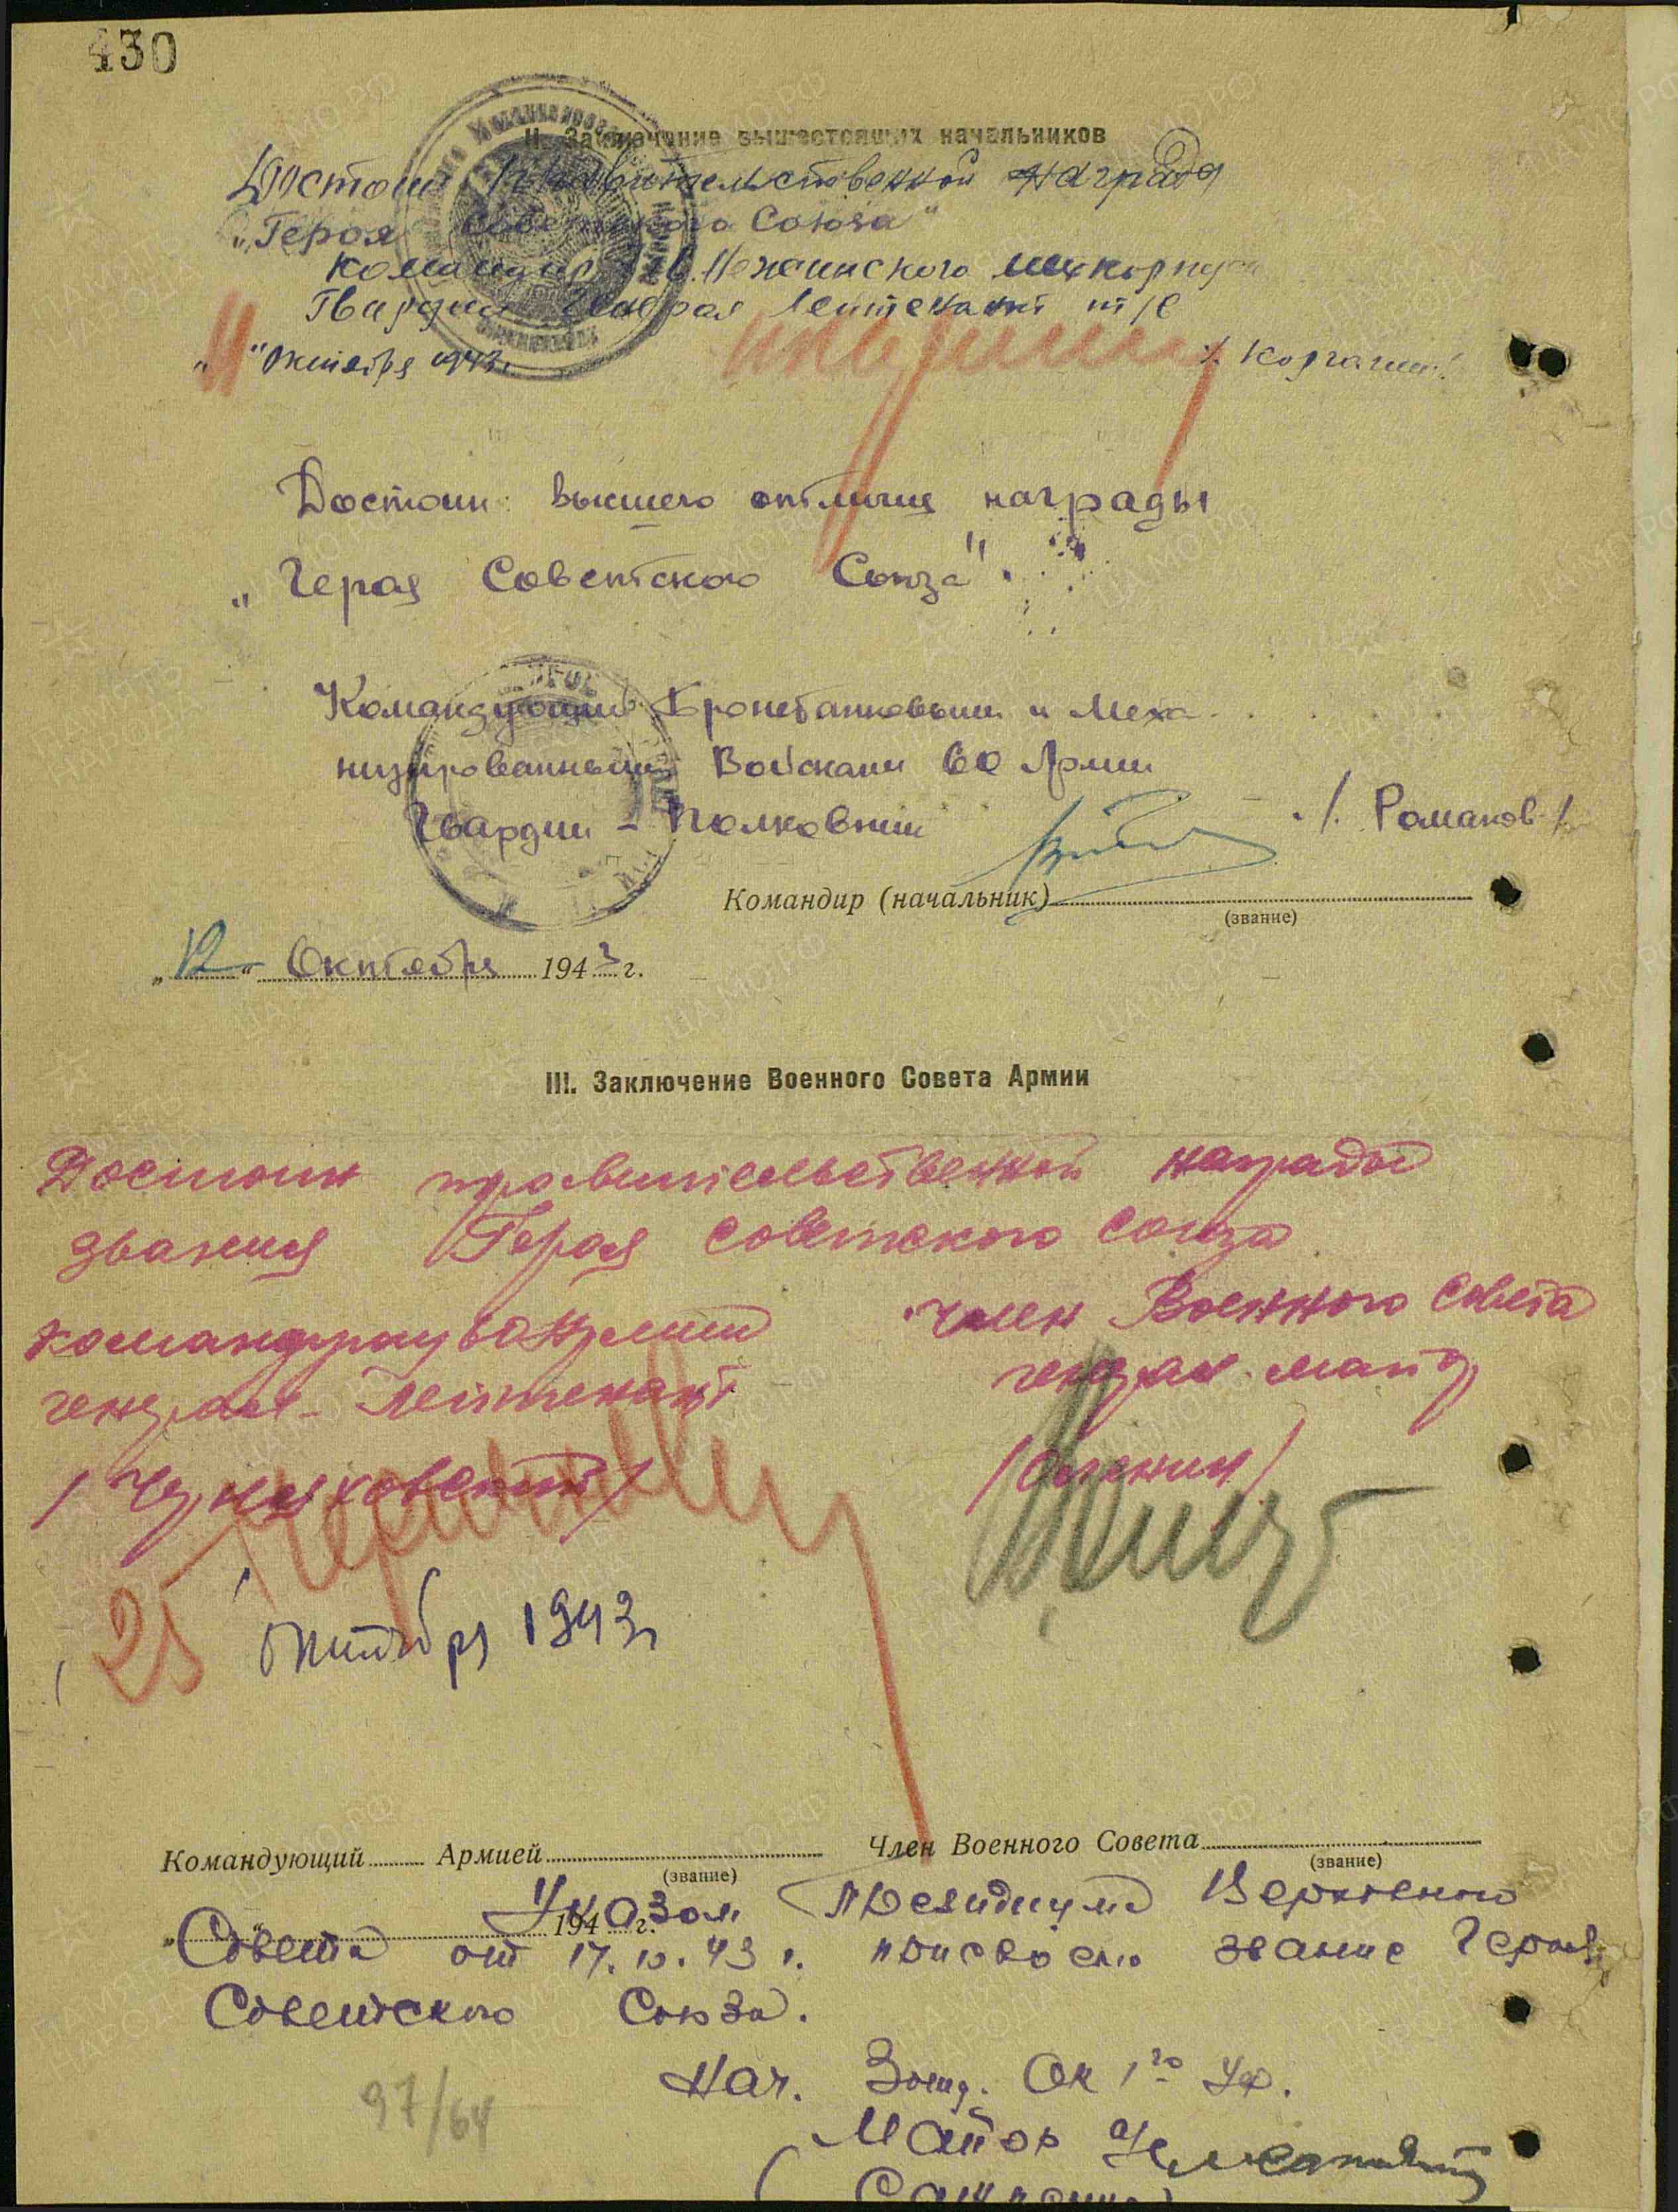 430
II. Заключение вышестоящих начальников
Достоин Правительственной награды
„Героя Советского Союза"
Командир Нежинского мехкорпуса
Гвардии Генерал Лейтенант т/в
„11" Октября 1943 г. /. Корчагин/.
Достоин высшего отличия награды
„Героя Советского Союза".
Командующий Бронетанковыми и Меха
низированными Войсками 60 Армии
Гвардии – Полковник /. Романов /
Командир (начальник)
(звание)
„12" Октября 1943 г.
III. Заключение Военного Совета Армии
Достоин правительственной награды
звания Героя Советского Союза
Член Военного Совета
генерал-лейтенант генерал-майор
/Черняховский/ /Оленин/
25 Октября 1943
Командующий Армией Член Военного Совета
(звание) (звание)
194 г.
Указом Президиума Верховного
Совета от 17.10.43 г. присвоено звание Героя
Советского Союза.
Нач. Ок 1го Уф.
Майор
97/64